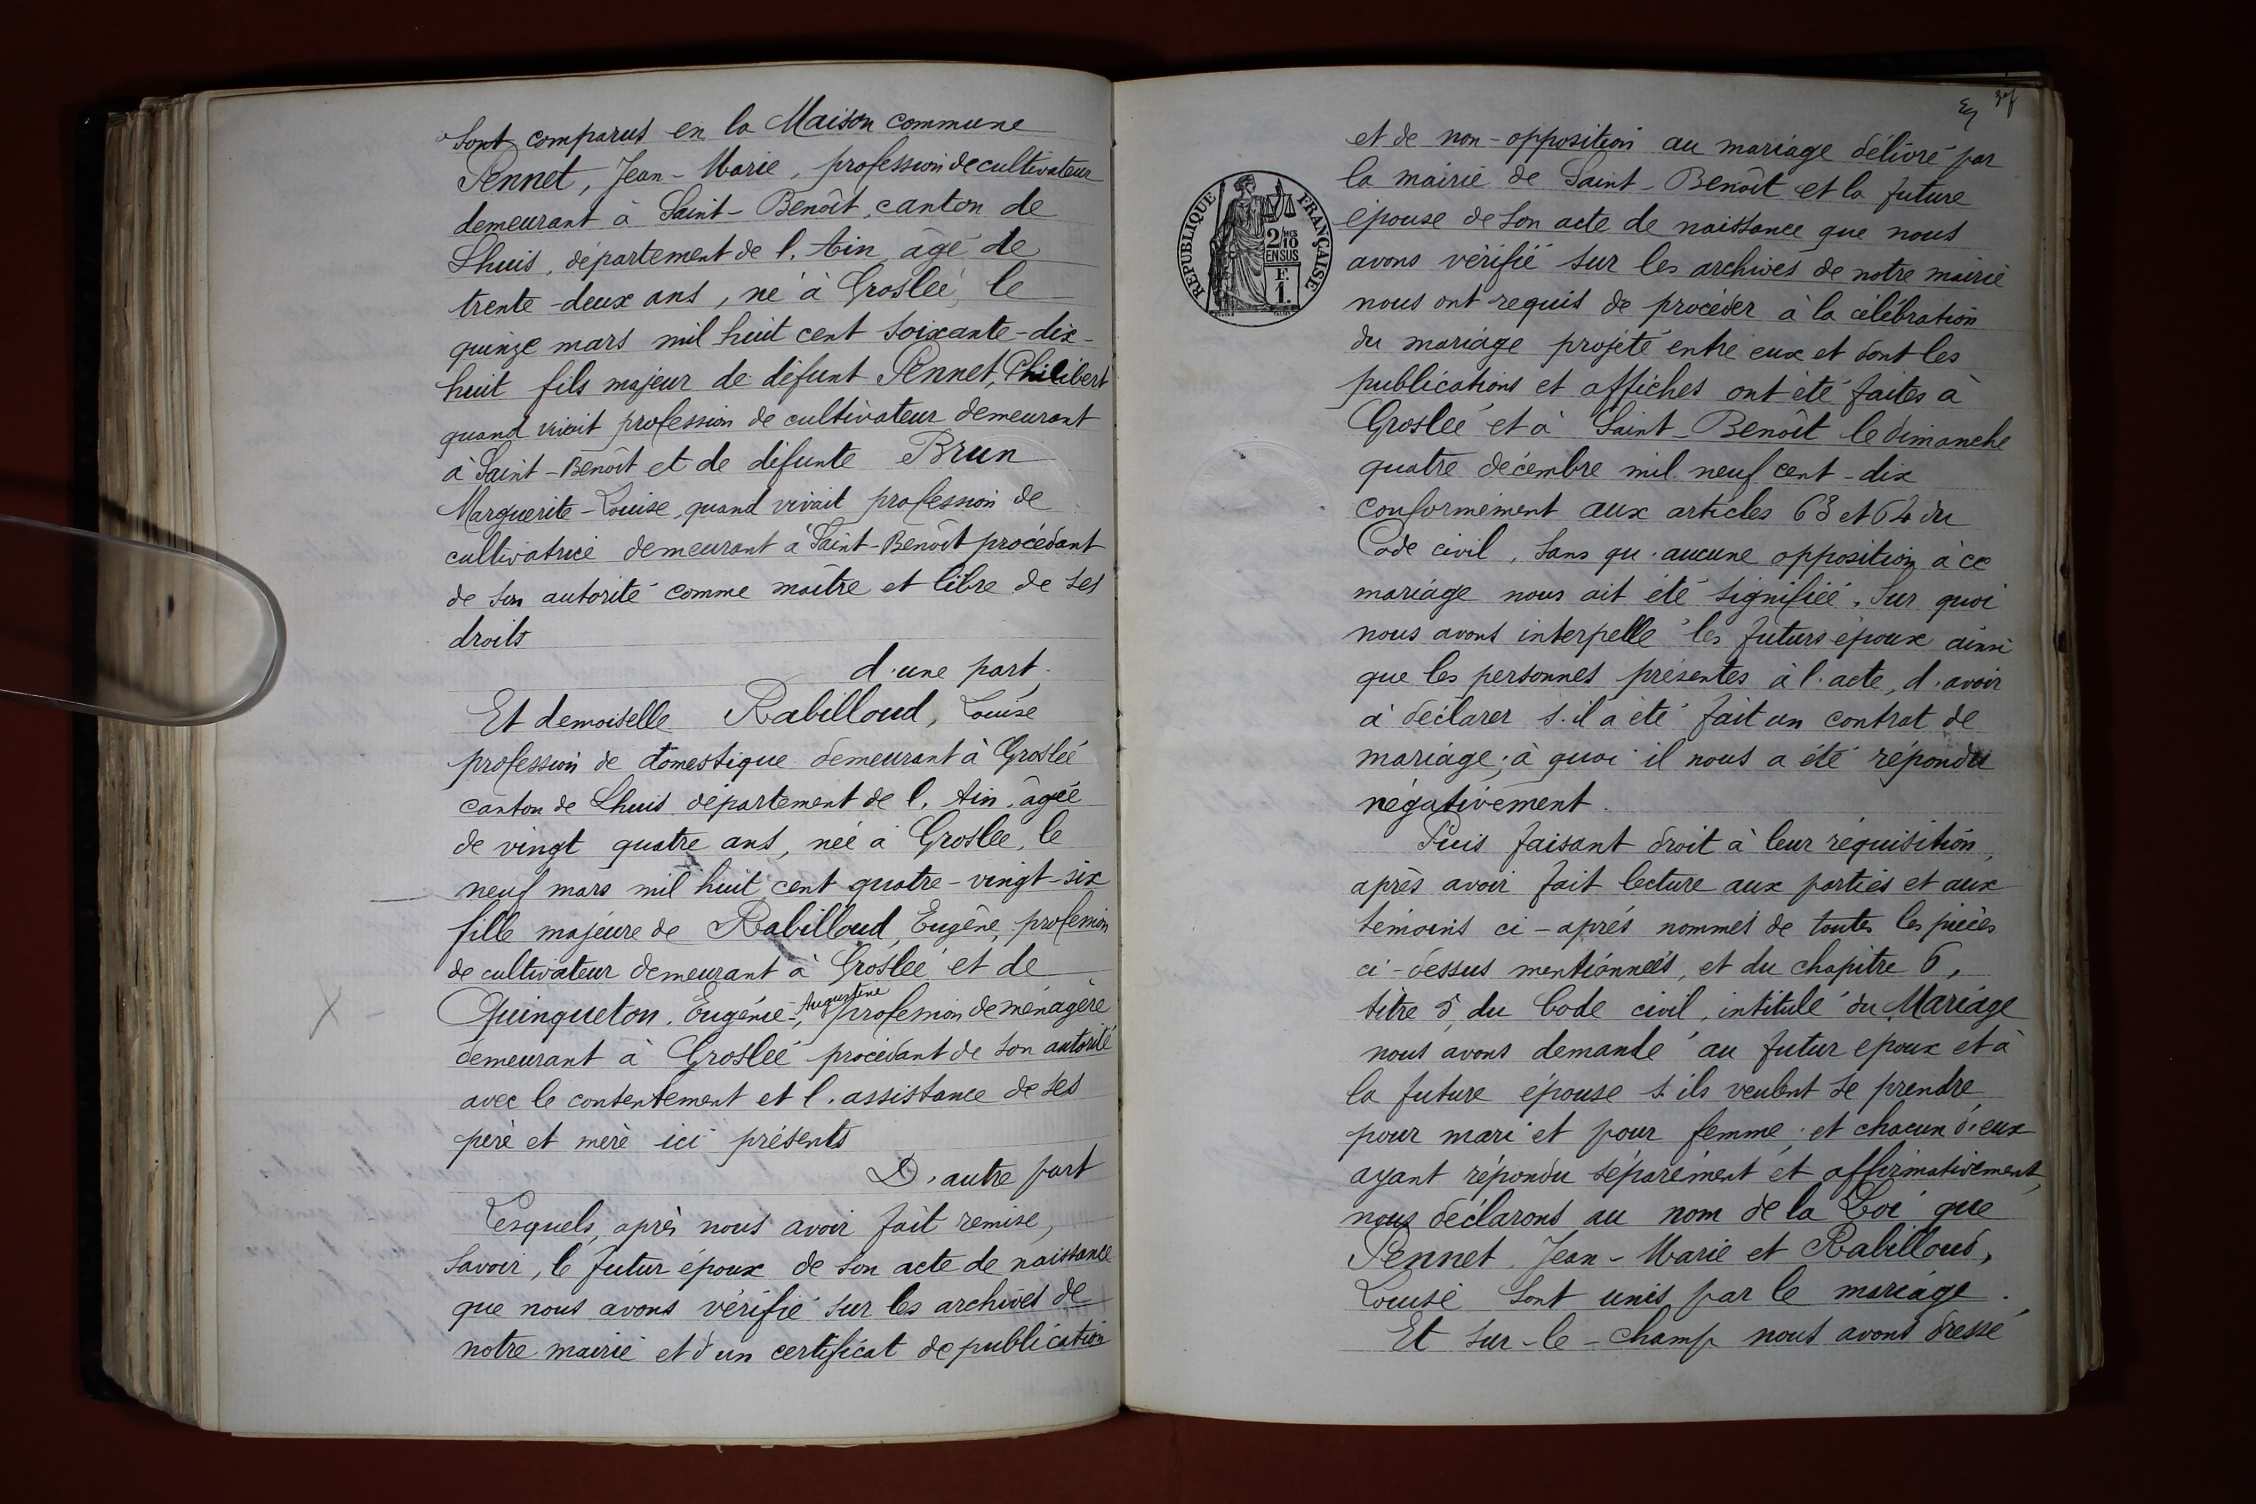 Sont comparus en la Maison commune
Pennet, Jean-Marie, profession de cultivateur
demeurant à Saint-Benoît, canton de
Lhuis, département de l'Ain, âgé de
trente-deux ans, né à Groslée, le
quinze mars mil huit cent soixante-dix-
huit fils majeur de défunt Pennet, Philibert
quand vivait profession de cultivateur demeurant
à Saint-Benoît et de défunte Brun
Marguerite-Louise, quand vivait profession de
cultivatrice demeurant à Saint-Benoît procédant
de son autorité comme maître et libre de ses
droits
d'une part.
Et demoiselle Rabilloud, Louise
profession de domestique demeurant à Groslée
canton de Lhuis, département de l'Ain, âgée
de vingt quatre ans, née à Groslée, le
neuf mars mil huit cent quatre-vingt-six
fille majeure de Rabilloud, Eugène, profession
de cultivateur demeurant à Groslée et de
Augustine
Quinqueton, Eugénie-, profession de ménagère
demeurant à Groslée procédant de son autorité
avec le consentement et l'assistance de ses
père et mère ici présents
D'autre part
Lesquels, après nous avoir fait remise,
savoir, le futur époux de son acte de naissance
que nous avons vérifié sur les archives de
notre mairie et d'un certificat de publication
et de non-opposition au mariage délivré par
la mairie de Saint-Benoît et la future
épouse de son acte de naissance que nous
avons vérifié sur les archives de notre mairie
nous ont requis de procéder à la célébration
du mariage projeté entre eux et dont les
publications et affiches ont été faites à
Groslée et à Saint-Benoît le dimanche
quatre décembre mil neuf cent-dix
conformément aux articles 63 et 64 du
Code civil, sans qu'aucune opposition à ce
mariage nous ait été signifiée. Sur quoi
nous avons interpellé les futurs époux ainsi
que les personnes présentes à l'acte, d'avoir
à déclarer s'il a été fait un contrat de
mariage; à quoi il nous a été répondu
négativement.
Puis faisant droit à leur réquisition,
après avoir fait lecture aux parties et aux
témoins ci-après nommés de toutes les pièces
ci-dessus mentionnées, et du chapitre 6,
titre 5, du Code civil, intitulé du Mariage
nous avons demandé au futur époux et à
la future épouse s'ils veulent se prendre
pour mari et pour femme; et chacun d'eux
ayant répondu séparément et affirmativement,
nous déclarons au nom de la Loi que
Pennet, Jean-Marie et Rabilloud,
Louise sont unis par le mariage.
Et sur-le-champ nous avons dressé
RÉPUBLIQUE FRANÇAISE
2/10
EN SUS
F.
1.